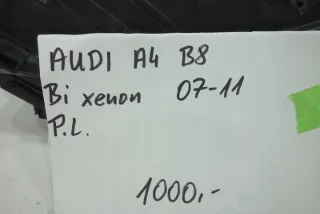 AUDI A4 B8
Bi xenon 07-11
P.L.
1000,-